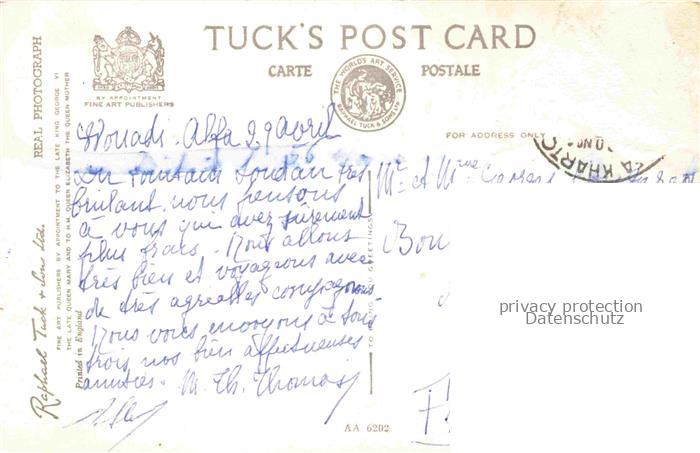 TUCK'S POST CARD
CARTE POSTALE
BY APPOINTMENT
FINE ART PUBLISHERS
THE WORLD'S ART SERVICE
RAPHAEL TUCK & SONS LTD
FOR ADDRESS ONLY
KHARTO
REAL PHOTOGRAPH
FINE ART PUBLISHERS BY APPOINTMENT TO THE LATE KING GEORGE VI
THE LATE QUEEN MARY AND TO H.M. QUEEN ELIZABETH THE QUEEN MOTHER
Raphael Tuck & Sons Ltd.
Printed in England
Ouadi. Alfa 29 avril
Du lointain Soudan très
brûlant, nous pensons
à vous qui avez sûrement
plus frais. Nous allons
très bien et voyageons avec
de très agréables compagnons
Nous vous envoyons à tous
trois nos bien affectueuses
amitiés. M. Th. Thomas
Mr et Mme
Bou
AA 6202
privacy protection
Datenschutz